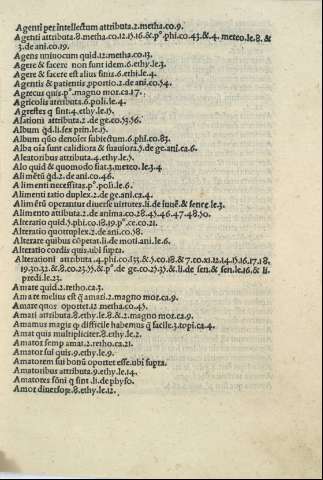 Agenti per intellectum attributa.2.metha.co.9.
Agenti attributa.8.metha.co.12.15.16.&.pº.phi.co.43.&.4. meteo.le.8.&
3.de ani.co.19.
Agens uniuocum quid.12.metha.co.13.
Agere & facere non sunt idem.6.ethy.le.3.
Agere & facere est alius finis.6.ethi.le.4.
Agentis & patientis ꝓportio.2.de ani.co.54.
Agrecus quis.pº.magno mor.ca.17.
Agricolis attributa.6.poli.le.4.
Agrestes q̃ sint.4.ethy.le.15.
Asationi attributa.2.de ge.co.53.56.
Album qd.li.sex prin.le.15.
Album quo denotet subiectum.6.phi.co.83.
Alba oia sunt calidiora & suauiora.5.de ge.ani.ca.6.
Aleatoribus attributa.4.ethy.le.5.
Alo quid & quomodo fiat.3.meteo.le.3.4
Alimẽti qd.2.de ani.co.46.
Alimenti necessitas.pº.poli.le.6.
Alimenti ratio duplex.2.de ge.ani.ca.4.
Alimẽto operantur diuerse uirtutes.li.de iuuẽ.& senec.le.3.
Alimento attributa.2.de anima.co.28.45.46.47.48.50.
Alteratio quid.5.phi.co.18.19.pº.ce.co.21.
Alteratio quotuplex.2.de ani.co.58.
Alterare quibus cõpetat.li.de moti.ani.le.6.
Alteratio cordis quis.ubi supra.
Alterationi attributa.4.phi.co.133.&.5.co.18.&.7.co.12.14.15.16.17.18.
19.30.32.&.8.co.23.55.&.pº.de ge.co.23.55.&.li.de sen.& sen.le.16.&.li.
predi.le.23.
Amare quid.2.retho.ca.3.
Amare melius est q̃ amari.2.magno mor.ca.9.
Amare quos oportet.12.metha.co.45.
Amati attributa.8.ethy.le.8.&.2.magno mor.ca.9.
Amamus magis q̃ difficile habemus q̃ facile.3.topi.ca.4.
Amat quis multipliciter.8.ethy.le.2.
Amator semp amat.2.retho.ca.21.
Amator sui quis.9.ethy.le.9.
Amatorem sui bonũ oportet esse.ubi supra.
Amatoribus attributa.9.ethy.le.14.
Amatores sõni q̃ sint.li.de physo.
Amor diuersoꝝ.8.ethy.le.12.